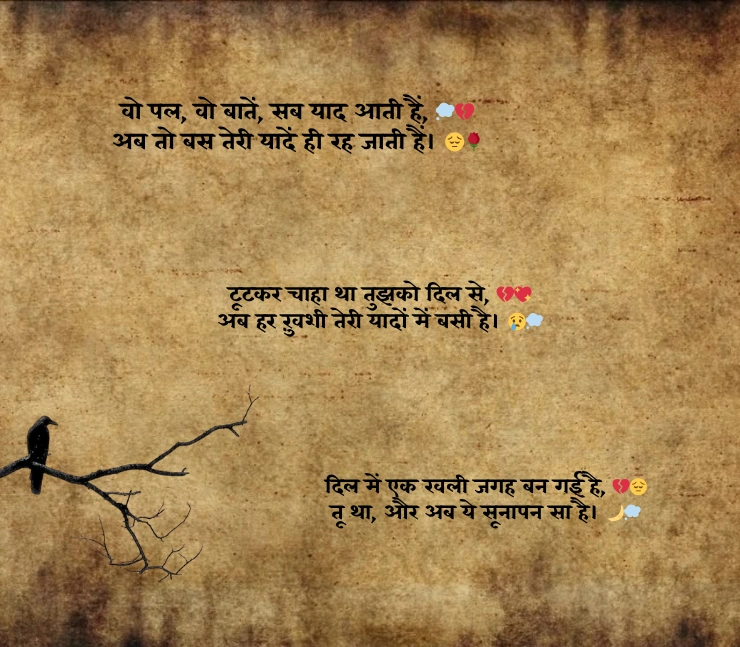 वो पल, वो बातें, सब याद आती हैं, 💭💔
अब तो बस तेरी यादें ही रह जाती हैं। 😔🌹
टूटकर चाहा था तुझको दिल से, 💔💘
अब हर ख़ुशी तेरी यादों में बसी है। 😢💭
दिल में एक खली जगह बन गई है, 💔😔
तू था, और अब ये सूनापन सा है। 🌙💭